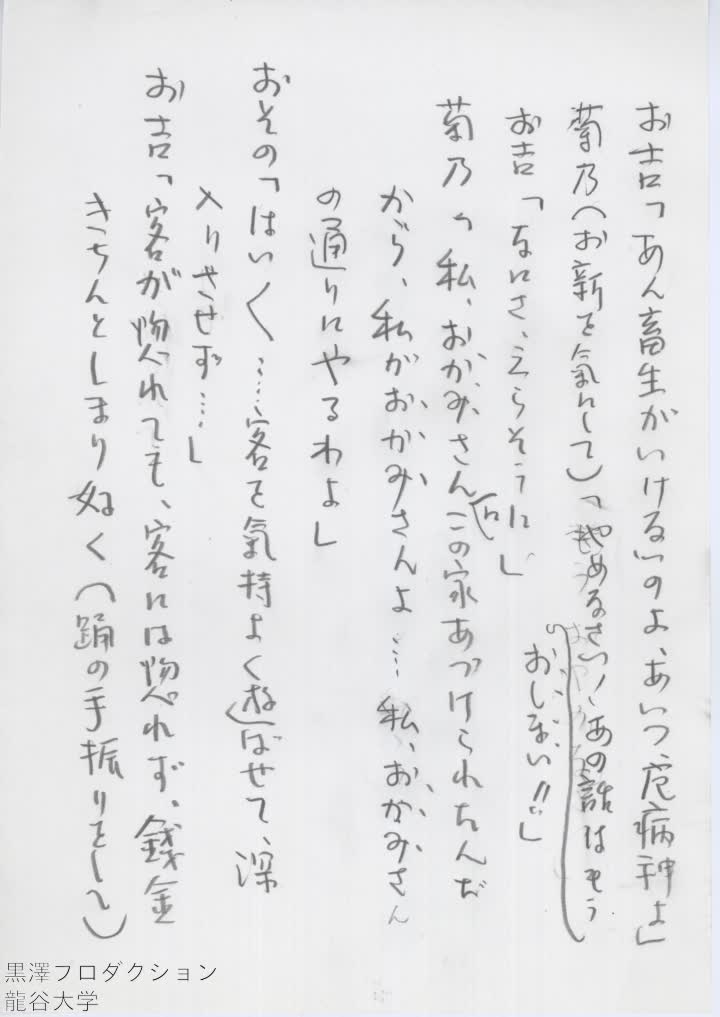 お吉「あん畜生がいけないのよ、あいつ、疫病神よ」
菊乃（お新を気にして）「やめなさい！あの話はもう
おしまい!!」
お吉「なにさ、えらそうに」
菊乃「私、おかみさんにこの家あづけられたんだ
から、私がおかみさんよ……私、おかみさん
の通りにやるわよ」
おその「はい〱……客を氣持よく遊ばせて、深
入りさせず……」
お吉「客が惚れても、客には惚れず、銭金
きちんとしまり ぬく（踊の手振りをして）
黒澤プロダクション
龍谷大学